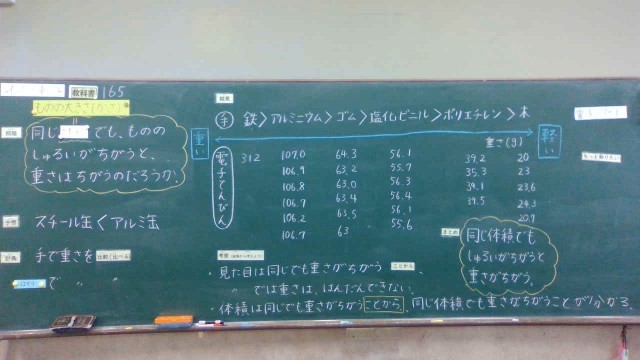 教科書 165
ものの大きさ(かさ)
問題
同じ でも、ものの
しゅるいがちがうと、
重さはちがうのだろうか。
予想
スチール缶<アルミ缶
計画
手で重さを比較(比べる)
はかりで 〃 〃
結果
手 鉄>アルミニウム>ゴム>塩化ビニル>ポリエチレン>木
重い
軽い
重さ(g)
電子てんびん
312 107.0 64.3 56.1 39.2 20
106.9 63.2 55.7 35.3 23
106.8 63.0 56.3 39.1 23.6
106.7 63.4 56.4 39.5 24.3
106.2 63.5 56.1 20.9
106.7 63 55.6
考察
・見た目は同じでも重さがちがう ことから、
〃 では重さは、はんだんできない。
・体積は同じでも重さがちがうことから、同じ体積でも重さがちがうことが分かる。
まとめ
同じ体積でも
しゅるいがちがうと
重さがちがう。
もっと知りたい